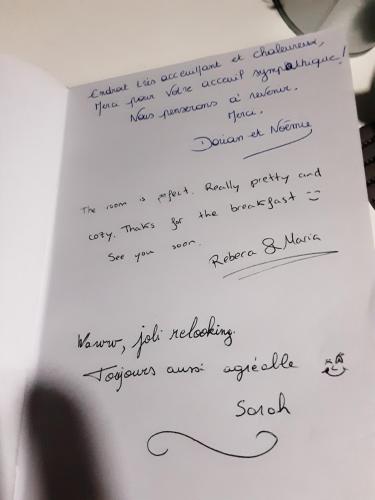 Endroit très acceuillant et chaleureux,
Merci pour votre acceuil sympathique!
Nous penserons à revenir.
Merci.
Dorian et Noémie
The room is perfect. Really pretty and
cozy. Thaks for the breakfast :)
See you soon.
Rebeca & Maria
Waww, joli relooking.
Toujours aussi agréable
Sarah